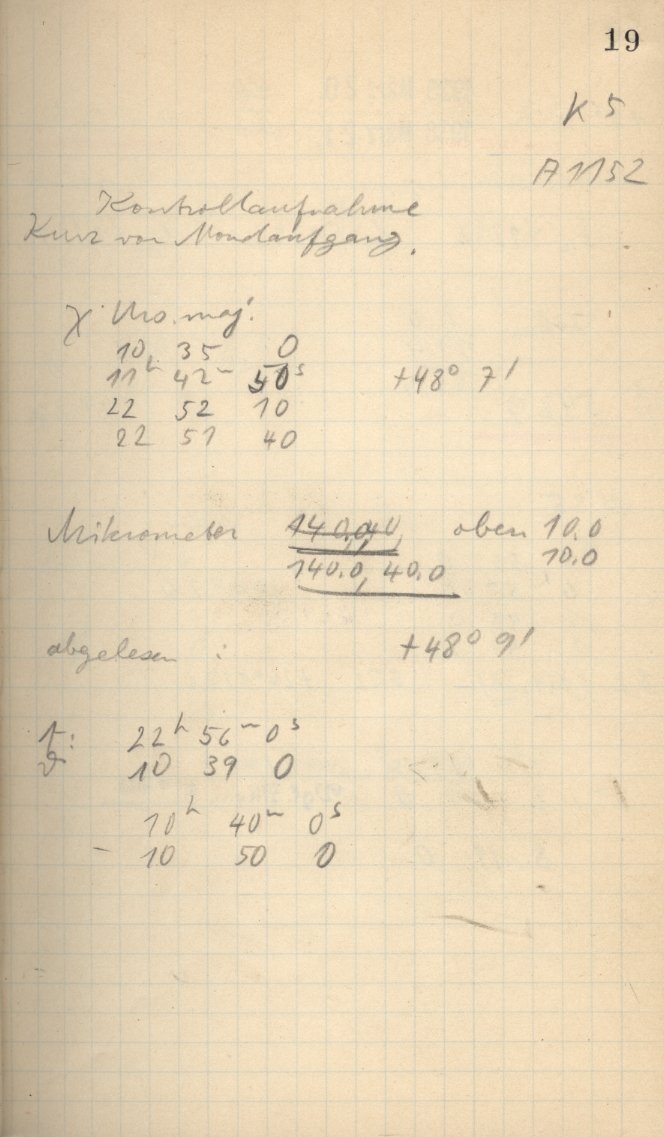 19
K 5
A 1152
Kontrollaufnahme
Kurz vor Mondaufgang.
χ Urs. maj.
10 35 0
11h 42m 50s +48° 7'
22 52 10
22 51 40
Mikrometer 140,0,40, oben 10.0
140.0, 40.0 10.0
abgelesen : +48° 9'
t: 22h 56m 0s
ϑ 10 39 0
10h 40m 0s
- 10 50 0